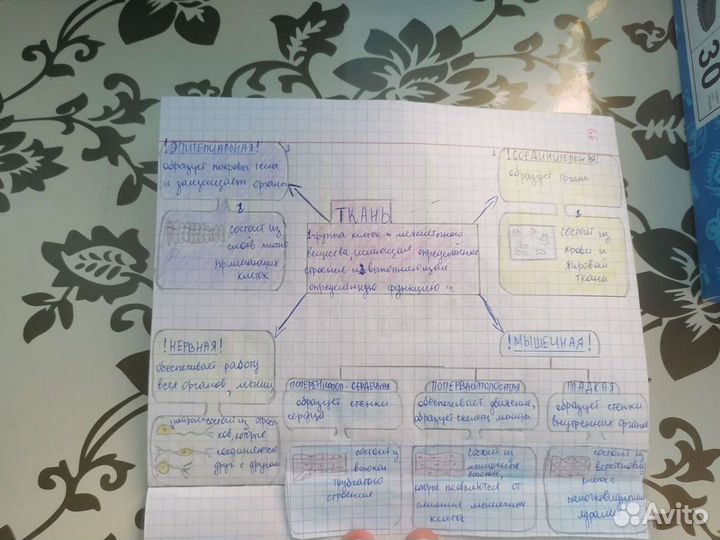 30
!ЭПИТЕЛИАЛЬНАЯ!
образует покровы тела
и защищает органы
1
состоит из
слоёв плотно
прилегающих
клеток
!СОЕДИНИТЕЛЬНАЯ!
образует органы
1
состоит из
крови и
жировой
ткани
ТКАНЬ
группа клеток и межклеточного
вещества, имеющая определённое
строение и выполняющая
определённую функцию
!НЕРВНАЯ!
обеспечивает работу
всех органов, мышц
состоит из
которые
соединяются
друг с другом
!МЫШЕЧНАЯ!
СЕРДЕЧНАЯ
образует стенки
сердца
состоит из
волокон
трубчатого
строения
обеспечивает движение,
образует скелетн мышцы
состоит из
волокон,
появляются от
слияния мышечных
клеток
ГЛАДКАЯ
образует стенки
внутренних органов
состоит из
клеток с
палочковидными
ядрами
Avito